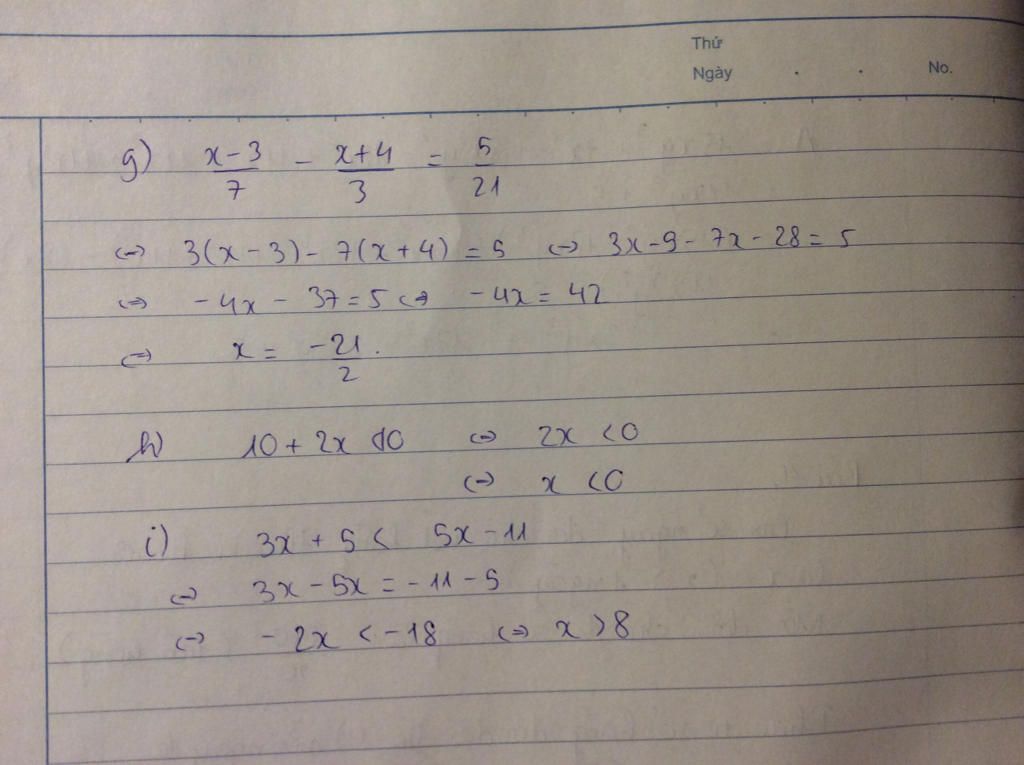 Thứ
Ngày . . No.
g) (x-3)/7 - (x+4)/3 = 5/21
⇔ 3(x-3) - 7(x+4) = 5 ⇔ 3x-9-7x-28=5
⇔ -4x - 37=5 ⇔ -4x = 42
⇔ x = -21/2.
h) 10+2x <10 ⇔ 2x <0
⇔ x <0
i) 3x + 5 < 5x-11
⇔ 3x-5x = -11-5
⇔ -2x <-18 ⇔ x >8